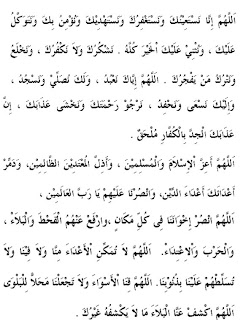 اَللّٰهُمَّ إِنَّا نَسْتَعِيْنُكَ وَنَسْتَغْفِرُكَ وَنَسْتَهْدِيْكَ وَنُؤْمِنُ بِكَ وَنَتَوَكَّلُ
عَلَيْكَ ، وَنُثْنِيْ عَلَيْكَ الْخَيْرَ كُلَّهُ . نَشْكُرُكَ وَلَا نَكْفُرُكَ ، وَنَخْلَعُ
وَنَتْرُكُ مَنْ يَفْجُرُكَ . اَللّٰهُمَّ إِيَّاكَ نَعْبُدُ ، وَلَكَ نُصَلِّيْ وَنَسْجُدُ ،
وَإِلَيْكَ نَسْعَى وَنَحْفِدُ ، نَرْجُوْ رَحْمَتَكَ وَنَخْشَى عَذَابَكَ ، إِنَّ
عَذَابَكَ الْجِدَّ بِالْكُفَّارِ مُلْحَقٌ
اَللّٰهُمَّ أَعِزَّ الْإِسْلَامَ وَالْمُسْلِمِيْنَ ، وَأَذِلَّ الْمُعْتَدِيْنَ الظَّالِمِيْنَ ، وَدَمِّرْ
أَعْدَائَكَ أَعْدَاءَ الدِّيْنِ، وَانْصُرْنَا عَلَيْهِمْ يَا رَبَّ الْعَالَمِيْنَ ،
اَللّٰهُمَّ انْصُرْ إِخْوَانَنَا فِى كُلِّ مَكَانٍ ،وَارْفَعْ عَنْهُمُ الْقَحْطَ وَالْبَلَاءَ ،
وَالْحَرْبَ وَالْإِعْتِدَاءَ. اَللّٰهُمَّ لَا تُمَكِّنِ الْأَعْدَاءَ مِنَّا وَلَا فِيْنَا وَلَا
تُسَلِّطْهُمْ عَلَيْنَا بِذُنُوْبِنَا. اَللّٰهُمَّ قِنَا الْأَسْوَاءَ وَلَا تَجْعَلْنَا مَحَلًّا لِلْبَلْوَى
اَللّٰهُمَّ اكْشِفْ عَنَّا الْبَلَاءَ مَا لَا يَكْشِفُهُ غَيْرُكَ .